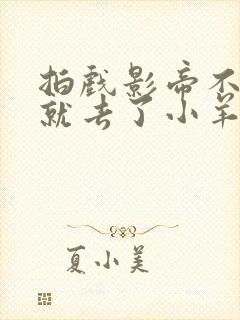 拍戏影帝不
就去了小羊
夏小美